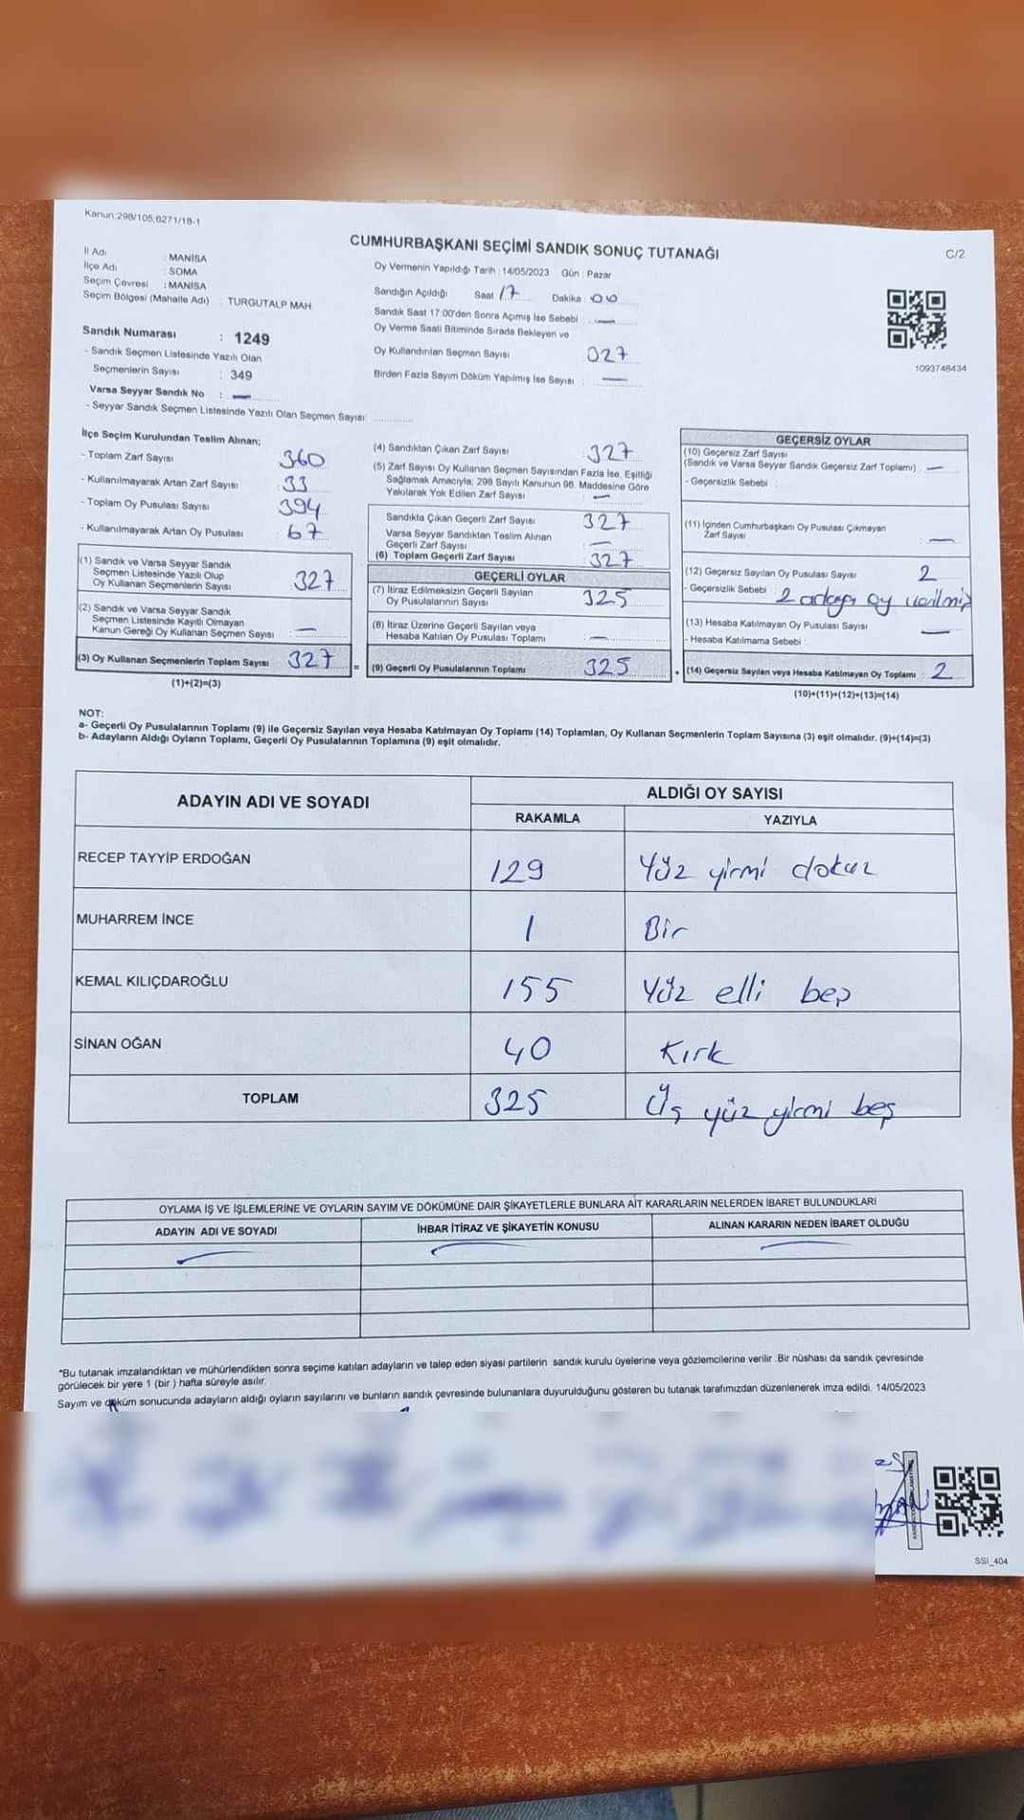 Kanun:298/105,6271/18-1
CUMHURBAŞKANI SEÇİMİ SANDIK SONUÇ TUTANAĞI
C/2
İl Adı : MANİSA
İlçe Adı : SOMA
Seçim Çevresi : MANİSA
Seçim Bölgesi (Mahalle Adı) : TURGUTALP MAH.
Sandık Numarası : 1249
- Sandık Seçmen Listesinde Yazılı Olan
Seçmenlerin Sayısı : 349
Varsa Seyyar Sandık No : —
- Seyyar Sandık Seçmen Listesinde Yazılı Olan Seçmen Sayısı
Oy Vermenin Yapıldığı Tarih : 14/05/2023 Gün : Pazar
Sandığın Açıldığı Saat 17 Dakika : 00
Sandık Saat 17:00'den Sonra Açımış İse Sebebi : —
Oy Verme Saati Bitiminde Sırada Bekleyen ve
Oy Kullandırılan Seçmen Sayısı 027
Birden Fazla Sayım Döküm Yapılmış İse Sayısı : —
1093746434
İlçe Seçim Kurulundan Teslim Alınan;
- Toplam Zarf Sayısı 360
- Kullanılmayarak Artan Zarf Sayısı 33
- Toplam Oy Pusulası Sayısı 394
- Kullanılmayarak Artan Oy Pusulası : 67
(1) Sandık ve Varsa Seyyar Sandık
Seçmen Listesinde Yazılı Olup
Oy Kullanan Seçmenlerin Sayısı : 327
(2) Sandık ve Varsa Seyyar Sandık
Seçmen Listesinde Kayıtlı Olmayan
Kanun Gereği Oy Kullanan Seçmen Sayısı : —
(3) Oy Kullanan Seçmenlerin Toplam Sayısı : 327
(1)+(2)=(3)
(4) Sandıktan Çıkan Zarf Sayısı 327
(5) Zarf Sayısı Oy Kullanan Seçmen Sayısından Fazla İse, Eşitliği
Sağlamak Amacıyla; 298 Sayılı Kanunun 98. Maddesine Göre
Yakılarak Yok Edilen Zarf Sayısı —
Sandıkta Çıkan Geçerli Zarf Sayısı 327
Varsa Seyyar Sandıktan Teslim Alınan
Geçerli Zarf Sayısı —
(6) Toplam Geçerli Zarf Sayısı 327
GEÇERLİ OYLAR
(7) İtiraz Edilmeksizin Geçerli Sayılan
Oy Pusulalarının Sayısı 325
(8) İtiraz Üzerine Geçerli Sayılan veya
Hesaba Katılan Oy Pusulası Toplamı —
= (9) Geçerli Oy Pusulalarının Toplamı 325
GEÇERSİZ OYLAR
(10) Geçersiz Zarf Sayısı
(Sandık ve Varsa Seyyar Sandık Geçersiz Zarf Toplamı) —
- Geçersizlik Sebebi
(11) İçinden Cumhurbaşkanı Oy Pusulası Çıkmayan
Zarf Sayısı —
(12) Geçersiz Sayılan Oy Pusulası Sayısı 2
- Geçersizlik Sebebi 2 adaya oy verilmiş
(13) Hesaba Katılmayan Oy Pusulası Sayısı —
- Hesaba Katılmama Sebebi
+ (14) Geçersiz Sayılan veya Hesaba Katılmayan Oy Toplamı : 2
(10)+(11)+(12)+(13)=(14)
NOT:
a- Geçerli Oy Pusulalarının Toplamı (9) ile Geçersiz Sayılan veya Hesaba Katılmayan Oy Toplamı (14) Toplamları, Oy Kullanan Seçmenlerin Toplam Sayısına (3) eşit olmalıdır. (9)+(14)=(3)
b- Adayların Aldığı Oyların Toplamı, Geçerli Oy Pusulalarının Toplamına (9) eşit olmalıdır.
ADAYIN ADI VE SOYADI ALDIĞI OY SAYISI
RAKAMLA YAZIYLA
RECEP TAYYİP ERDOĞAN 129 Yüz yirmi dokuz
MUHARREM İNCE 1 Bir
KEMAL KILIÇDAROĞLU 155 Yüz elli beş
SİNAN OĞAN 40 Kırk
TOPLAM 325 Üç yüz yirmi beş
OYLAMA İŞ VE İŞLEMLERİNE VE OYLARIN SAYIM VE DÖKÜMÜNE DAİR ŞİKAYETLERLE BUNLARA AİT KARARLARIN NELERDEN İBARET BULUNDUKLARI
ADAYIN ADI VE SOYADI İHBAR İTİRAZ VE ŞİKAYETİN KONUSU ALINAN KARARIN NEDEN İBARET OLDUĞU
*Bu tutanak imzalandıktan ve mühürlendikten sonra seçime katılan adayların ve talep eden siyasi partilerin sandık kurulu üyelerine veya gözlemcilerine verilir. Bir nüshası da sandık çevresinde
görülecek bir yere 1 (bir ) hafta süreyle asılır.
Sayım ve döküm sonucunda adayların aldığı oyların sayılarını ve bunların sandık çevresinde bulunanlara duyurulduğunu gösteren bu tutanak tarafımızdan düzenlenerek imza edildi. 14/05/2023
SSI_404